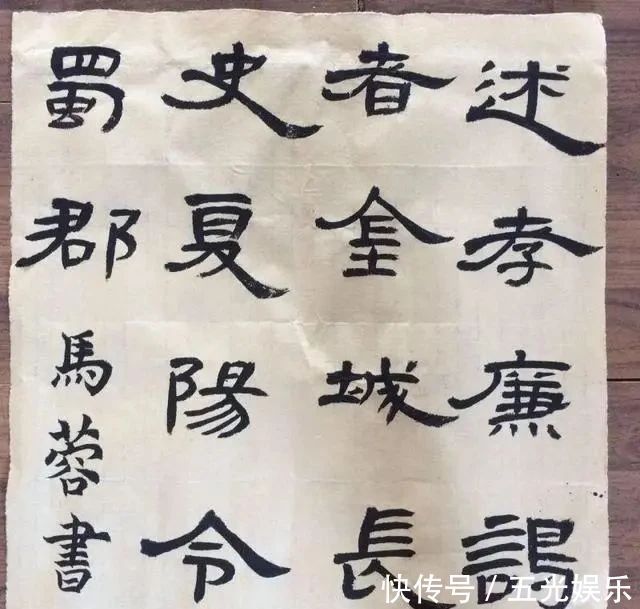 述孝廉謁
者金城長
史夏陽令
蜀郡
馬蓉書
快传号 / 五光娱乐